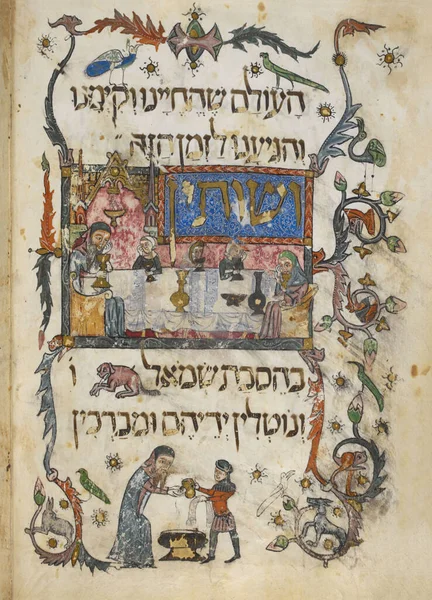 העולם שהחיינו וקימנו
והגיענו לזמן הזה
ושותין
בהסבת שמאל ו
ונוטלין ידיהם ומברכין